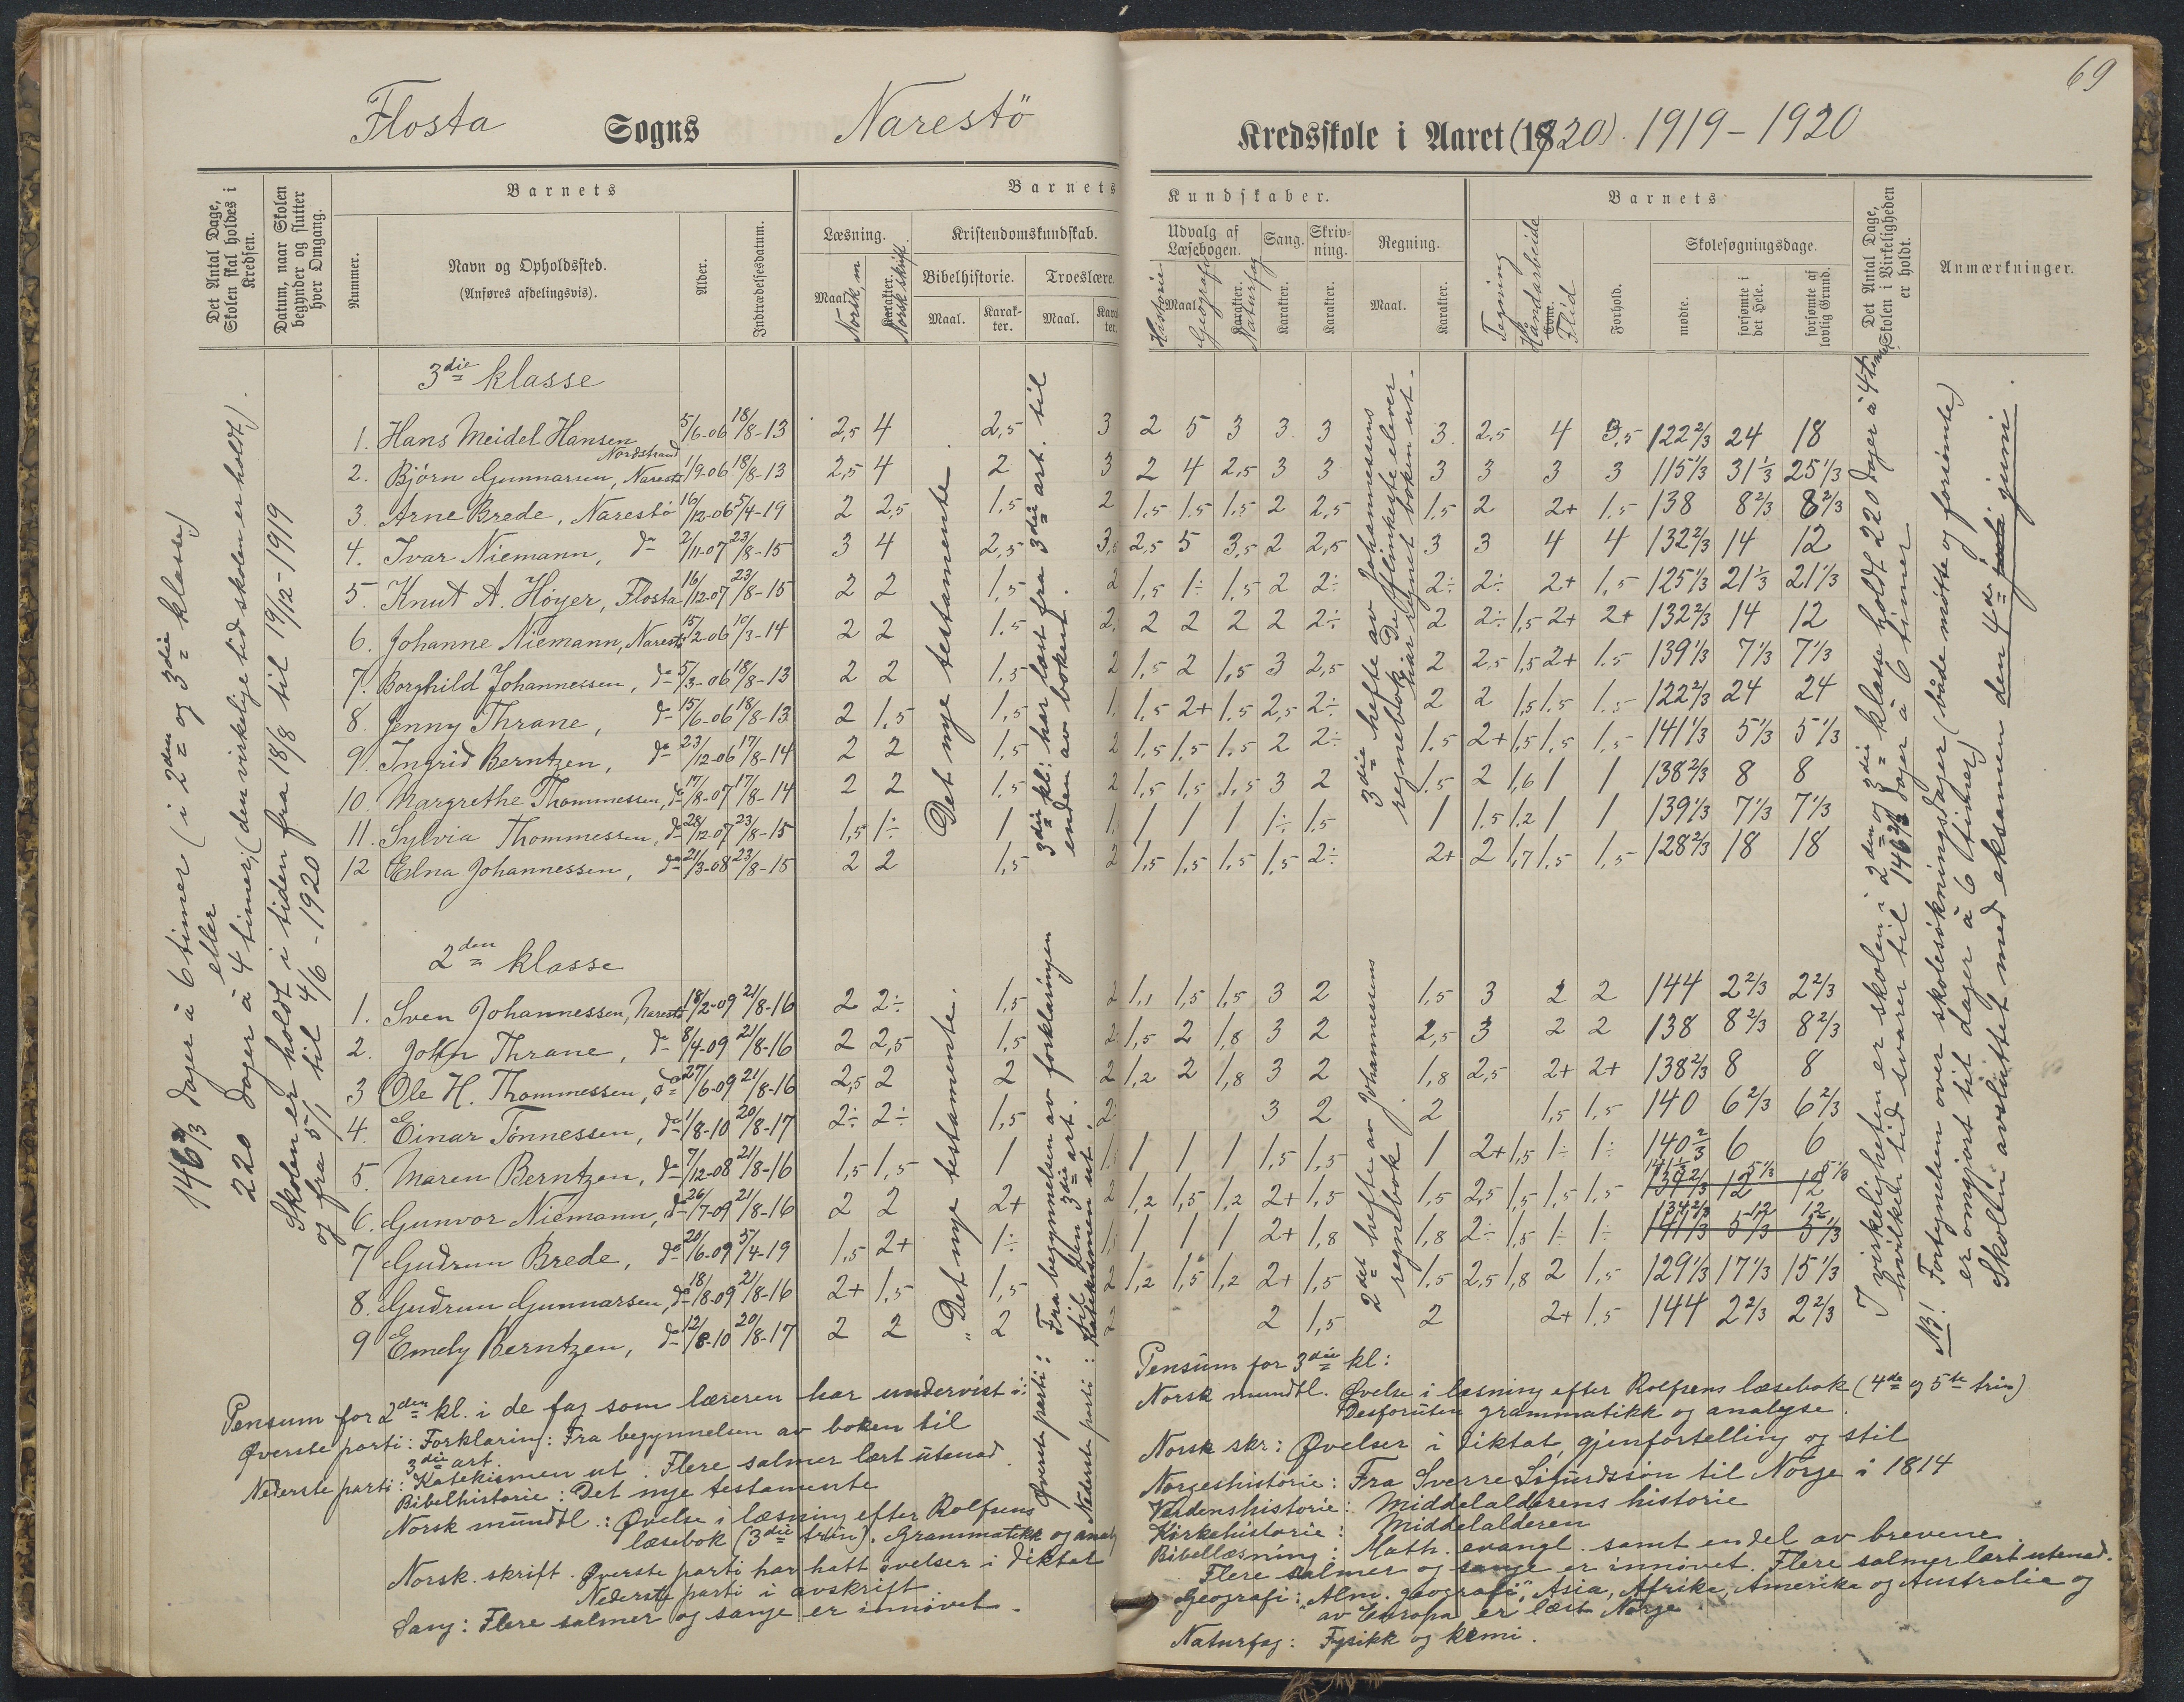 69
Flosta Sogns Narestö Kredsskole i Aaret (1920). 1919-1920
Det Antal Dage, Skolen skal holdes i Kredsen.
Datum, naar Skolen begynder og slutter hver Omgang.
Barnets
Nummer.
Navn og Opholdssted.
(Anføres afdelingsvis).
Alder.
Indtrædelsesdatum.
Barnets Kundskaber.
Læsning.
Maal. Norsk, m
Karakter. Norsk skrift.
Kristendomskundskab.
Bibelhistorie.
Maal.
Karakter.
Troeslære.
Maal.
Karakter.
Udvalg af Læsebogen.
Maal.
Karakter.
Historie
Geografi
Naturfag
Sang.
Karakter.
Skrivning.
Karakter.
Regning.
Maal.
Karakter.
Barnets
Tegning
Håndarbeide
Evne.
Flid
Forhold.
Skolesøgningsdage.
mødte.
forsømte i det Hele.
forsømte af lovlig Grund.
Det Antal Dage, Skolen i Virkeligheden er holdt.
Anmærkninger.
146 2/3 dager à 6 timer (i 2den og 3die klasse)
eller
220 dager à 4 timer; (den virkelige tid skolen er holdt).
Skolen er holdt i tiden fra 18/8 til 19/12-1919
og fra 5/1 til 4/6 - 1920
3die klasse
1. Hans Meidel Hansen Nordstrand 5/6-06 18/8-13 2,5 4 2,5 3 2 5 3 3 3 3 2,5 4 3,5 122 2/3 24 18
2. Bjørn Gunnarsen, Narestö 1/9-06 18/8-13 2,5 4 2 3 2 4 2,5 3 3 3 3 3 3 115 1/3 31 1/3 25 1/3
3. Arne Brede, Narestö 16/12-06 5/4-19 2 2,5 1,5 2 1,5 1,5 1,5 2 2,5 1,5 2 2+ 1,5 138 8 2/3 8 2/3
4. Ivar Niemann, do 2/11-07 23/8-15 3 4 2,5 3,5 2,5 5 3,5 2 2,5 3 3 4 4 132 2/3 14 12
5. Knut A. Höyer, Flosta 16/12-07 23/8-15 2 2 1,5 2 1,5 1÷ 1,5 2 2÷ 2÷ 2÷ 2+ 1,5 125 1/3 21 1/3 21 1/3
6. Johanne Niemann, Narestö 15/2-06 15/3-14 2 2 1,5 2 2 2 2 2 2÷ 2 2÷ 1,5 2+ 2+ 132 2/3 14 12
7. Borghild Johannessen, do 5/3-06 18/8-13 2 2 1,5 2 1,5 2 1,5 3 2,5 2 2,5 1,5 2+ 1,5 139 1/3 7 1/3 7 1/3
8. Jenny Thrane, do 15/6-06 18/8-13 2 1,5 1,5 1 1,5 2+ 1,5 2,5 2÷ 2 2 1,5 1,5 1,5 122 2/3 24 24
9. Ingrid Berntzen, do 23/12-06 17/8-14 2 2 1,5 2 1,5 1,5 1,5 2 2÷ 1,5 2+ 1,5 1,5 1,5 141 1/3 5 1/3 5 1/3
10. Margrethe Thommessen, do 17/8-07 17/8-14 2 2 1,5 2 1,5 1,5 1,5 3 2 1,5 2 1,6 1 1 138 2/3 8 8
11. Sylvia Thommessen, do 28/12-07 23/8-15 1,5 1÷ 1 1 1 1 1 1÷ 1,5 1 1,5 1,2 1 1 139 1/3 7 1/3 7 1/3
12 Elna Johannessen, do 21/3-08 23/8-15 2 2 1,5 2 1,5 1,5 1,5 1,5 2÷ 2+ 2 1,7 1,5 1,5 128 2/3 18 18
Det nye testamente.
3die kl: har læst fra 3die art. til
enden av boken.
3die hefte av Johannessens
regnebok. De flinkeste elever
har regnet boken ut.
2den klasse
1. Sven Johannessen, Narestö 18/2-09 21/8-16 2 2÷ 1,5 2 1,1 1,5 1,5 3 2 1,5 3 2 2 144 2 2/3 2 2/3
2. John Thrane, do 8/4-09 21/8-16 2 2,5 1,5 2 1,5 2 1,8 3 2 2,5 3 2 2 138 8 2/3 8 2/3
3 Ole H. Thommessen, do 27/6-09 21/8-16 2,5 2 2 2 1,2 2 1,8 3 2 1,8 2,5 2+ 2+ 138 2/3 8 8
4. Einar Tönnessen, do 1/8-10 20/8-17 2÷ 2÷ 1,5 2 3 2 2 1,5 1,5 140 6 2/3 6 2/3
5. Maren Berntzen, do 7/12-08 21/8-16 1,5 1,5 1 1 1 1 1 1,5 1,5 1 2+ 1,5 1÷ 1÷ 140 2/3 6 6
6. Gunvor Niemann, do 26/7-09 21/8-16 2 2 2+ 2 1,2 1,5 1,2 2+ 1,5 1,5 2,5 1,5 1,5 1,5 141 1/3 5 1/3 5 1/3
7 Gudrun Brede, do 20/6-09 5/4-19 1,5 2+ 1÷ 1 1 1 1 2+ 1,8 1,8 2÷ 1,5 1÷ 1÷ 134 2/3 12 12
8. Gudrun Gunnarsen, do 18/8-09 21/8-16 2+ 1,5 1,5 2 1,2 1,5 1,2 2+ 1,5 1,5 2,5 1,8 2 1,5 129 1/3 17 1/3 15 1/3
9 Emely Berntzen, do 12/8-10 20/8-17 2 2 2 2 2 1,5 2 2+ 1,5 144 2 2/3 2 2/3
"Det nye testamente.
Øverste parti: Fra begynnelsen av forklaringen
til den 3die art.
Nederste parti: Katekismen ut.
2det hefte av Johannessens
regnebok.
I virkeligheten er skolen i 2den og 3die klasse holdt 220 dager à 4 timer,
hvilken tid svarer til 146 2/3 dager à 6 timer
NB! Fortegnelsen over skolesökningsdager (både mötte og forsömte)
er omgjort til dager à 6 timer)
Skolen avsluttet med eksamen den 4de juni.
Pensum for 2den kl. i de fag som læreren har undervist i:
Øverste parti: Forklaring: Fra begynnelsen av boken til
3die art.
Nederste parti: Katekismen ut. Flere salmer lært utenad.
Bibelhistorie: Det nye testamente
Norsk mundtl.: Øvelse i læsning efter Rolfsens
læsebok (3die trin). Grammatikk og analy
Norsk. skrift. Øverste parti har hatt övelser i diktat
Nederste parti i avskrift.
Sang: Flere salmer og sange er innövet.
Pensum for 3die kl:
Norsk mundtl. Øvelse i læsning efter Rolfsens læsebok (4de og 5te trin)
Desforuten grammatikk og analyse.
Norsk skr: Øvelser i diktat, gjenfortelling og stil
Norgeshistorie: Fra Sverre Sigurdssön til Norge i 1814
Verdenshistorie: Middelalderens historie
Kirkehistorie: Middelalderen
Bibellæsning: Math. evangl. samt en del av brevene.
Flere salmer og sange er innövet. Flere salmer lært utenad.
Geografi: "Alm. geografi", Asia, Afrika, Amerika og Australia og
av Europa er læst Norge.
Naturfag: Fysikk og kemi.